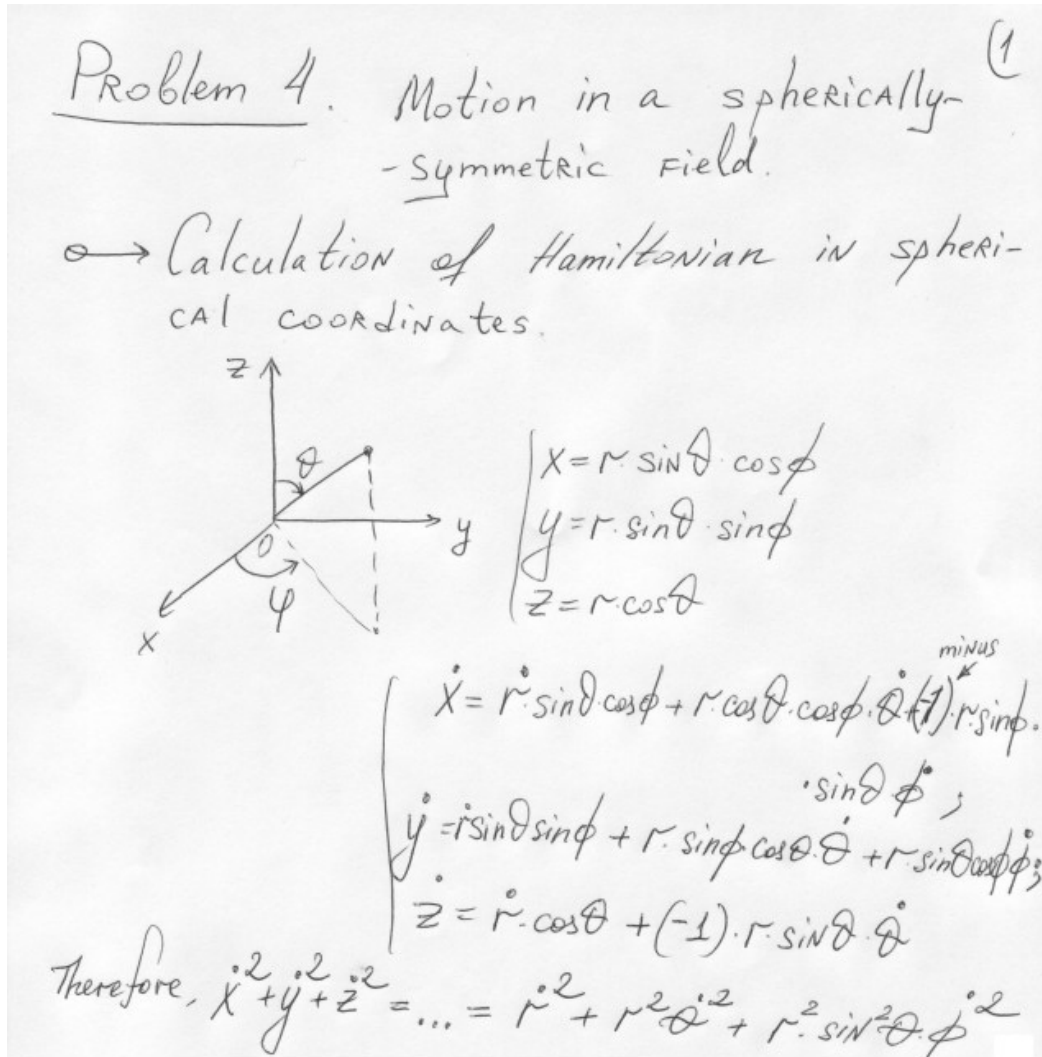 (1
Problem 4. Motion in a spherically-
-symmetric Field.
o→ Calculation of Hamiltonian in spheri-
cal coordinates.
z
θ
y
0
φ
x
x = r·sinθ·cosϕ
y = r·sinθ·sinϕ
z = r·cosθ
minus
ẋ = ṙ·sinθ·cosϕ + r·cosθ·cosϕ·θ̇ + (-1)·r·sinϕ·
·sinθ·ϕ̇ ;
ẏ = ṙ sinθ sinϕ + r·sinϕ·cosθ·θ̇ + r·sinθ cosϕ ϕ̇ ;
ż = ṙ·cosθ + (-1)·r·sinθ·θ̇
Therefore, ẋ² + ẏ² + ż² = ... = ṙ² + r²θ̇² + r²·sin²θ·ϕ̇²